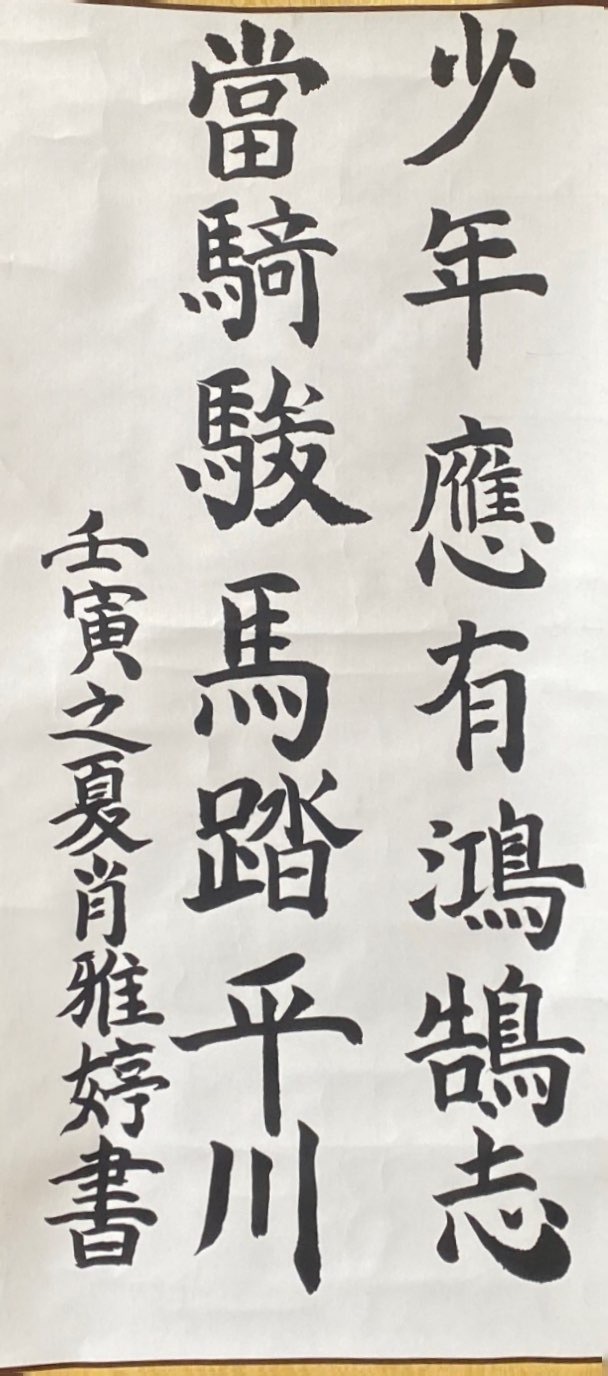 少年應有鴻鵠志
當騎駿馬踏平川
壬寅之夏肖雅婷書